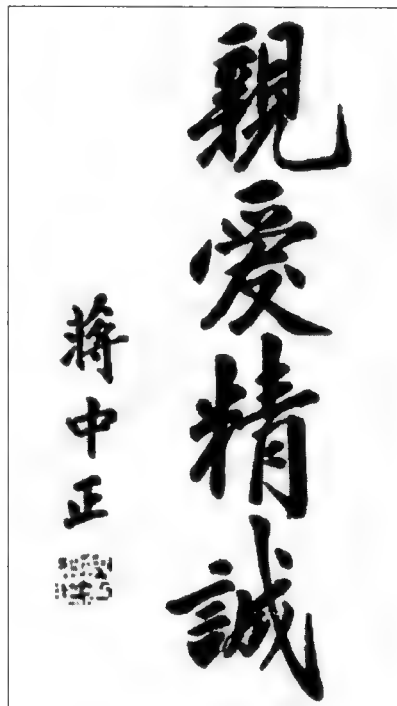 親愛精誠
蔣中正